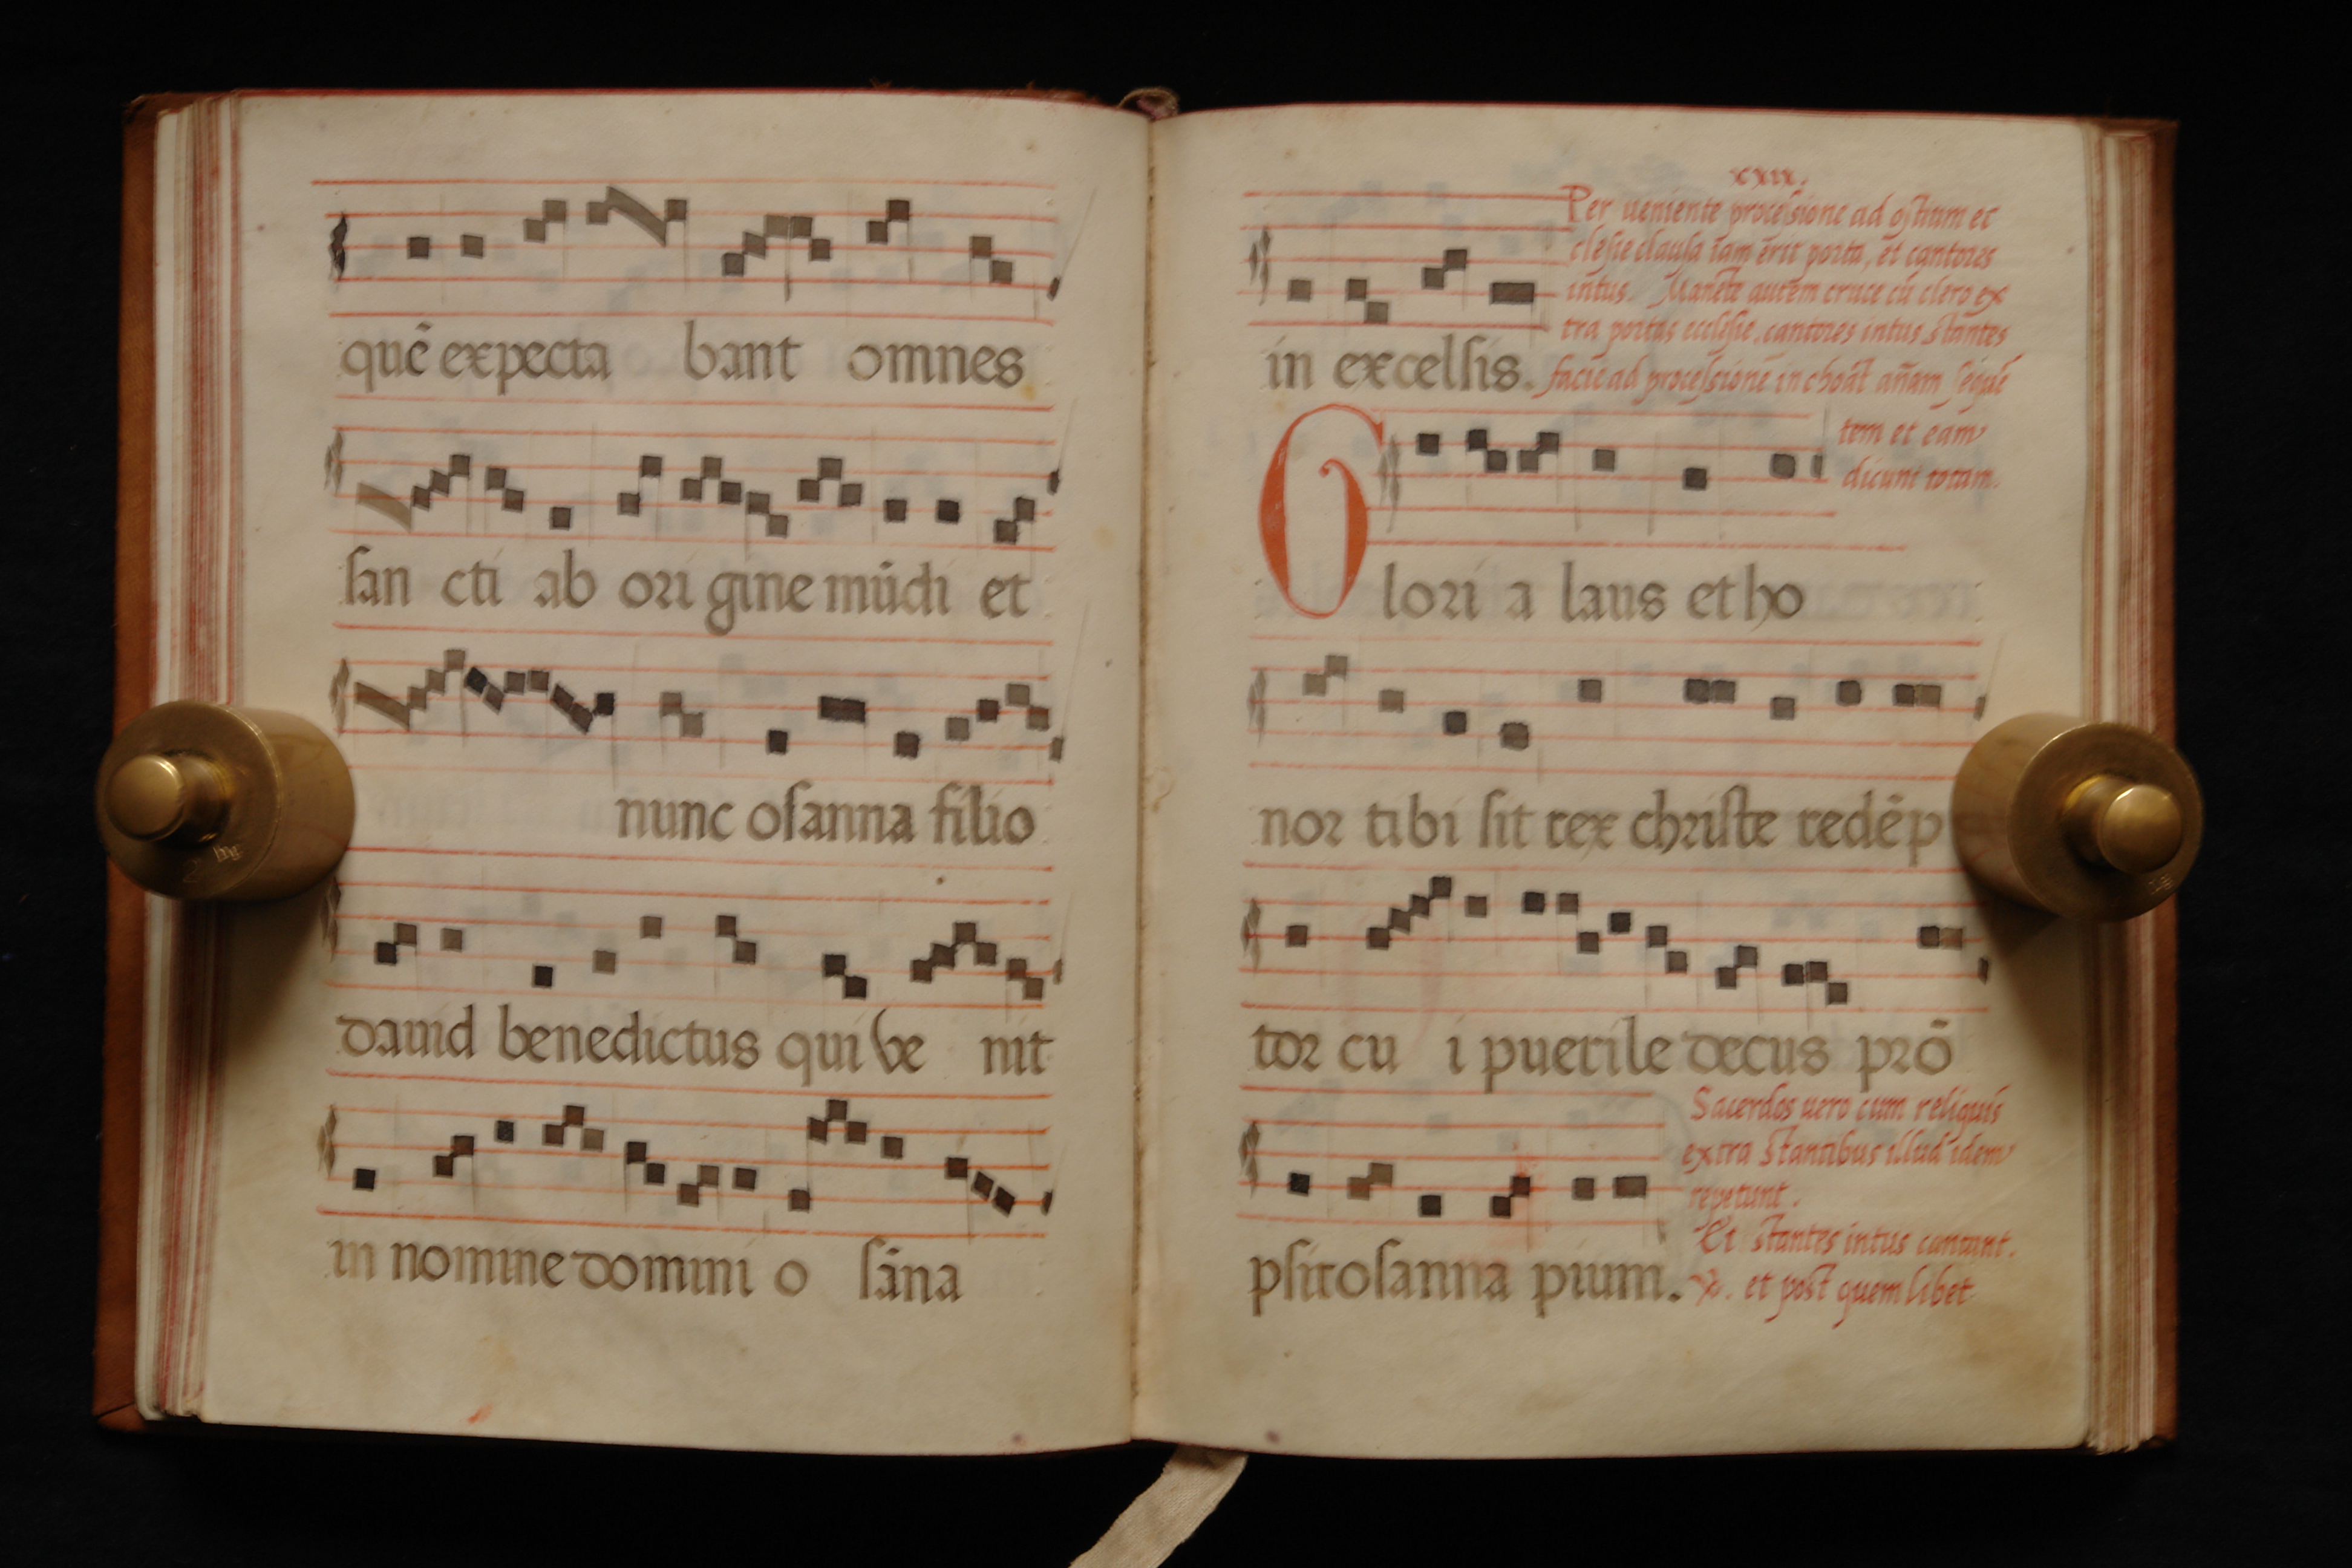 quē expecta bant omnes
ſan cti ab ori gine mūdi et
nunc oſanna filio
dauid benedictus qui ve nit
in nomine domini o ſāna
xxix.
Per ueniente proceſsione ad oſtium ec
cleſie clauſa iam erit porta, et cantores
intus. Manēte autem cruce cū clero ex
tra portas eccleſie, cantores intus ſtantes
in excelſis. facie ad proceſsionē in choāt añam ſequē
tem et eam
dicunt totam.
Glori a laus et ho
nor tibi ſit rex chriſte redēp
tor cu i puerile decus prō
Sacerdos uero cum reliquis
extra ſtantibus illud idem
repetunt.
Et ſtantes intus cantant.
pſit oſanna pium. ℣. et poſt quem libet